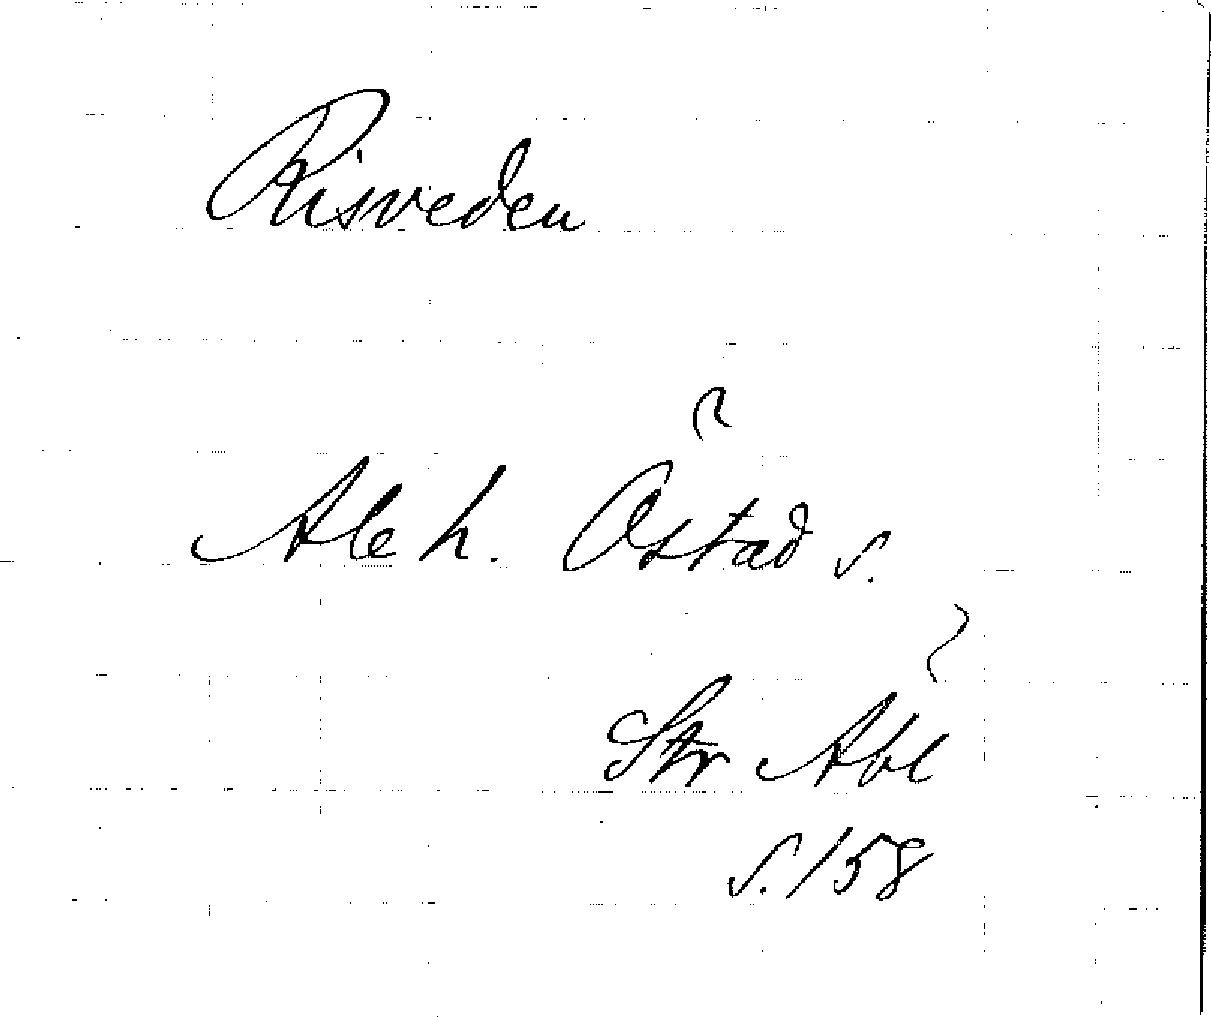 Risveden
Ale h. Östad s.
Str Abl
s. 158